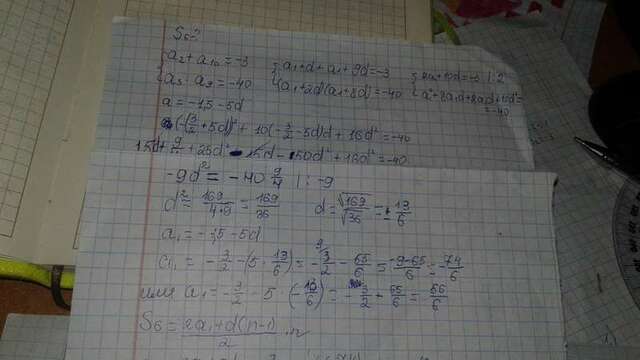 S₆-?
{a₂ + a₁₀ = -3 {a₁+d+a₁+9d=-3 {2a₁+10d=-3 |:2
{a₃ · a₉ = -40 {(a₁+2d)(a₁+8d)=-40 {a₁²+8a₁d+2a₁d+16d²=-40
a = -1,5-5d
(-(3/2+5d))² + 10(-3/2-5d)d + 16d² = -40
15d + 9/4 + 25d² - 15d - 50d² + 16d² = -40
-9d² = -40 9/4 |:-9
d² = 169/4·9 = 169/36 d = √169/√36 = ± 13/6
a₁ = -1,5-5d
a₁ = -3/2 - (5 · 13/6) = -3/2 - 65/6 = -9-65/6 = -74/6
или a₁ = -3/2 - 5 (-13/6) = -3/2 + 65/6 = 56/6
S₆ = 2a₁+d(n-1)/2 · n